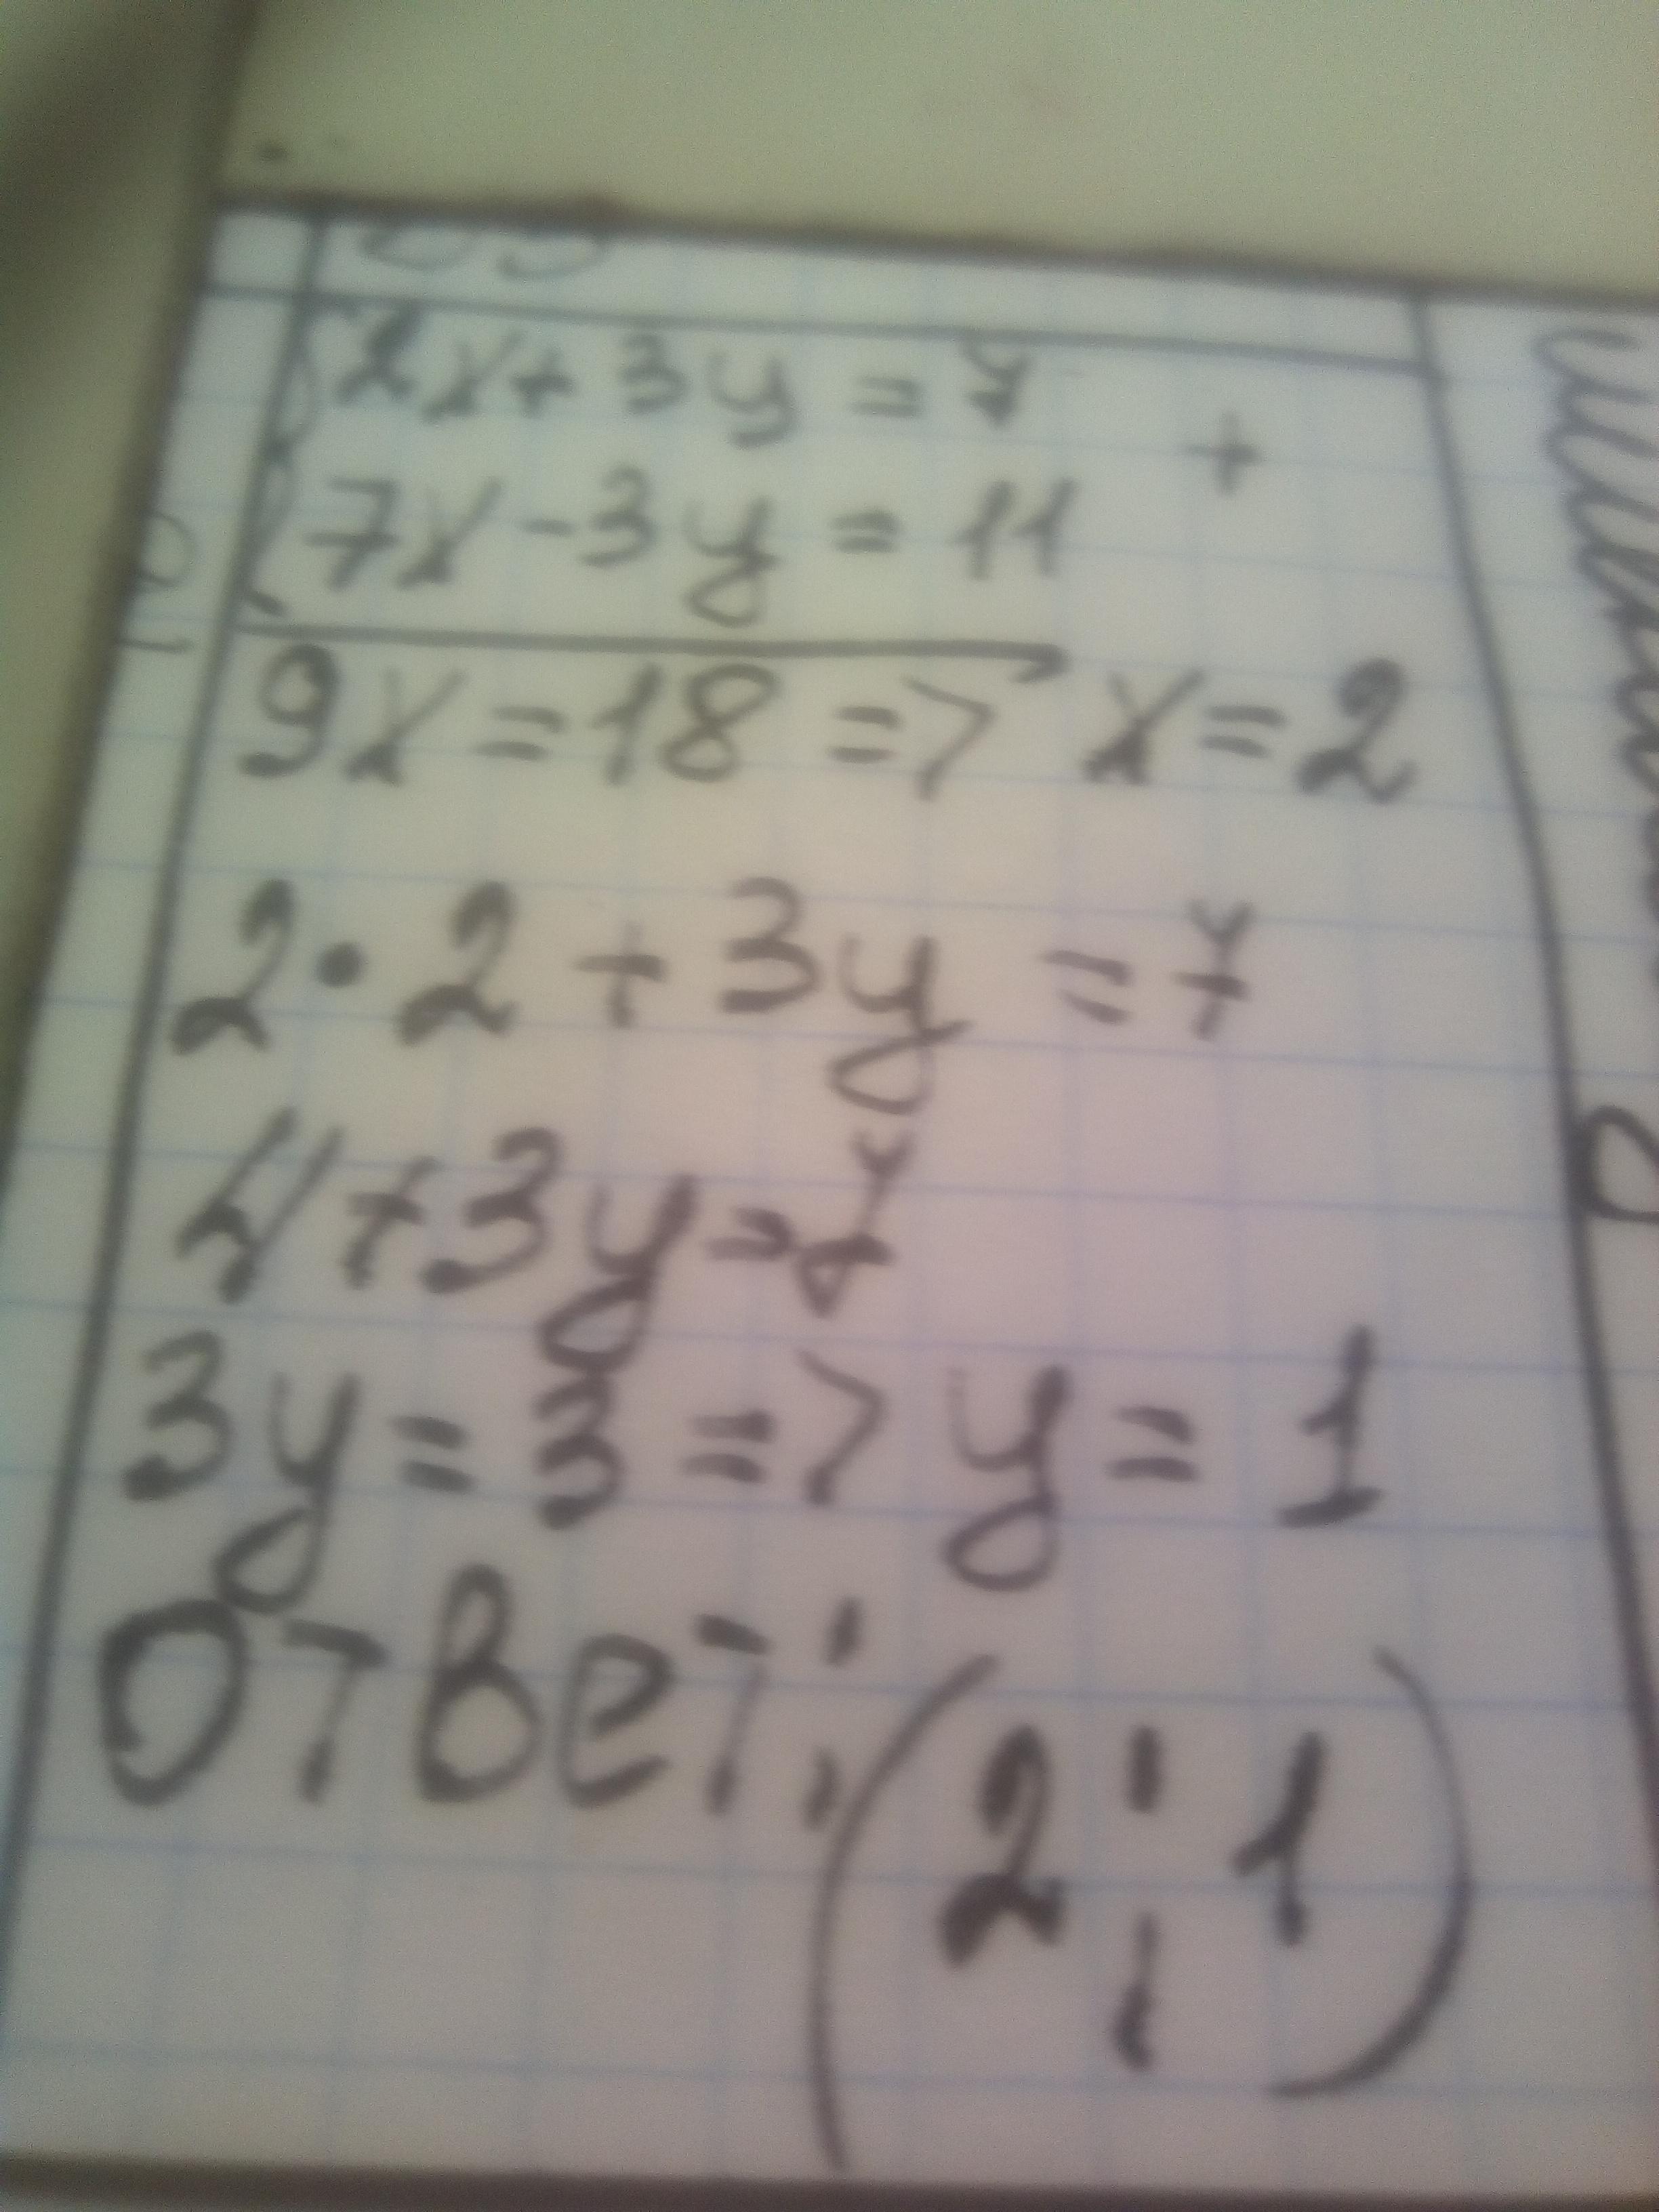 2x + 3y = 7
+
7x - 3y = 11
9x = 18 => x = 2
2 · 2 + 3y = 7
4 + 3y = 7
3y = 3 => y = 1
ответ: (2; 1)